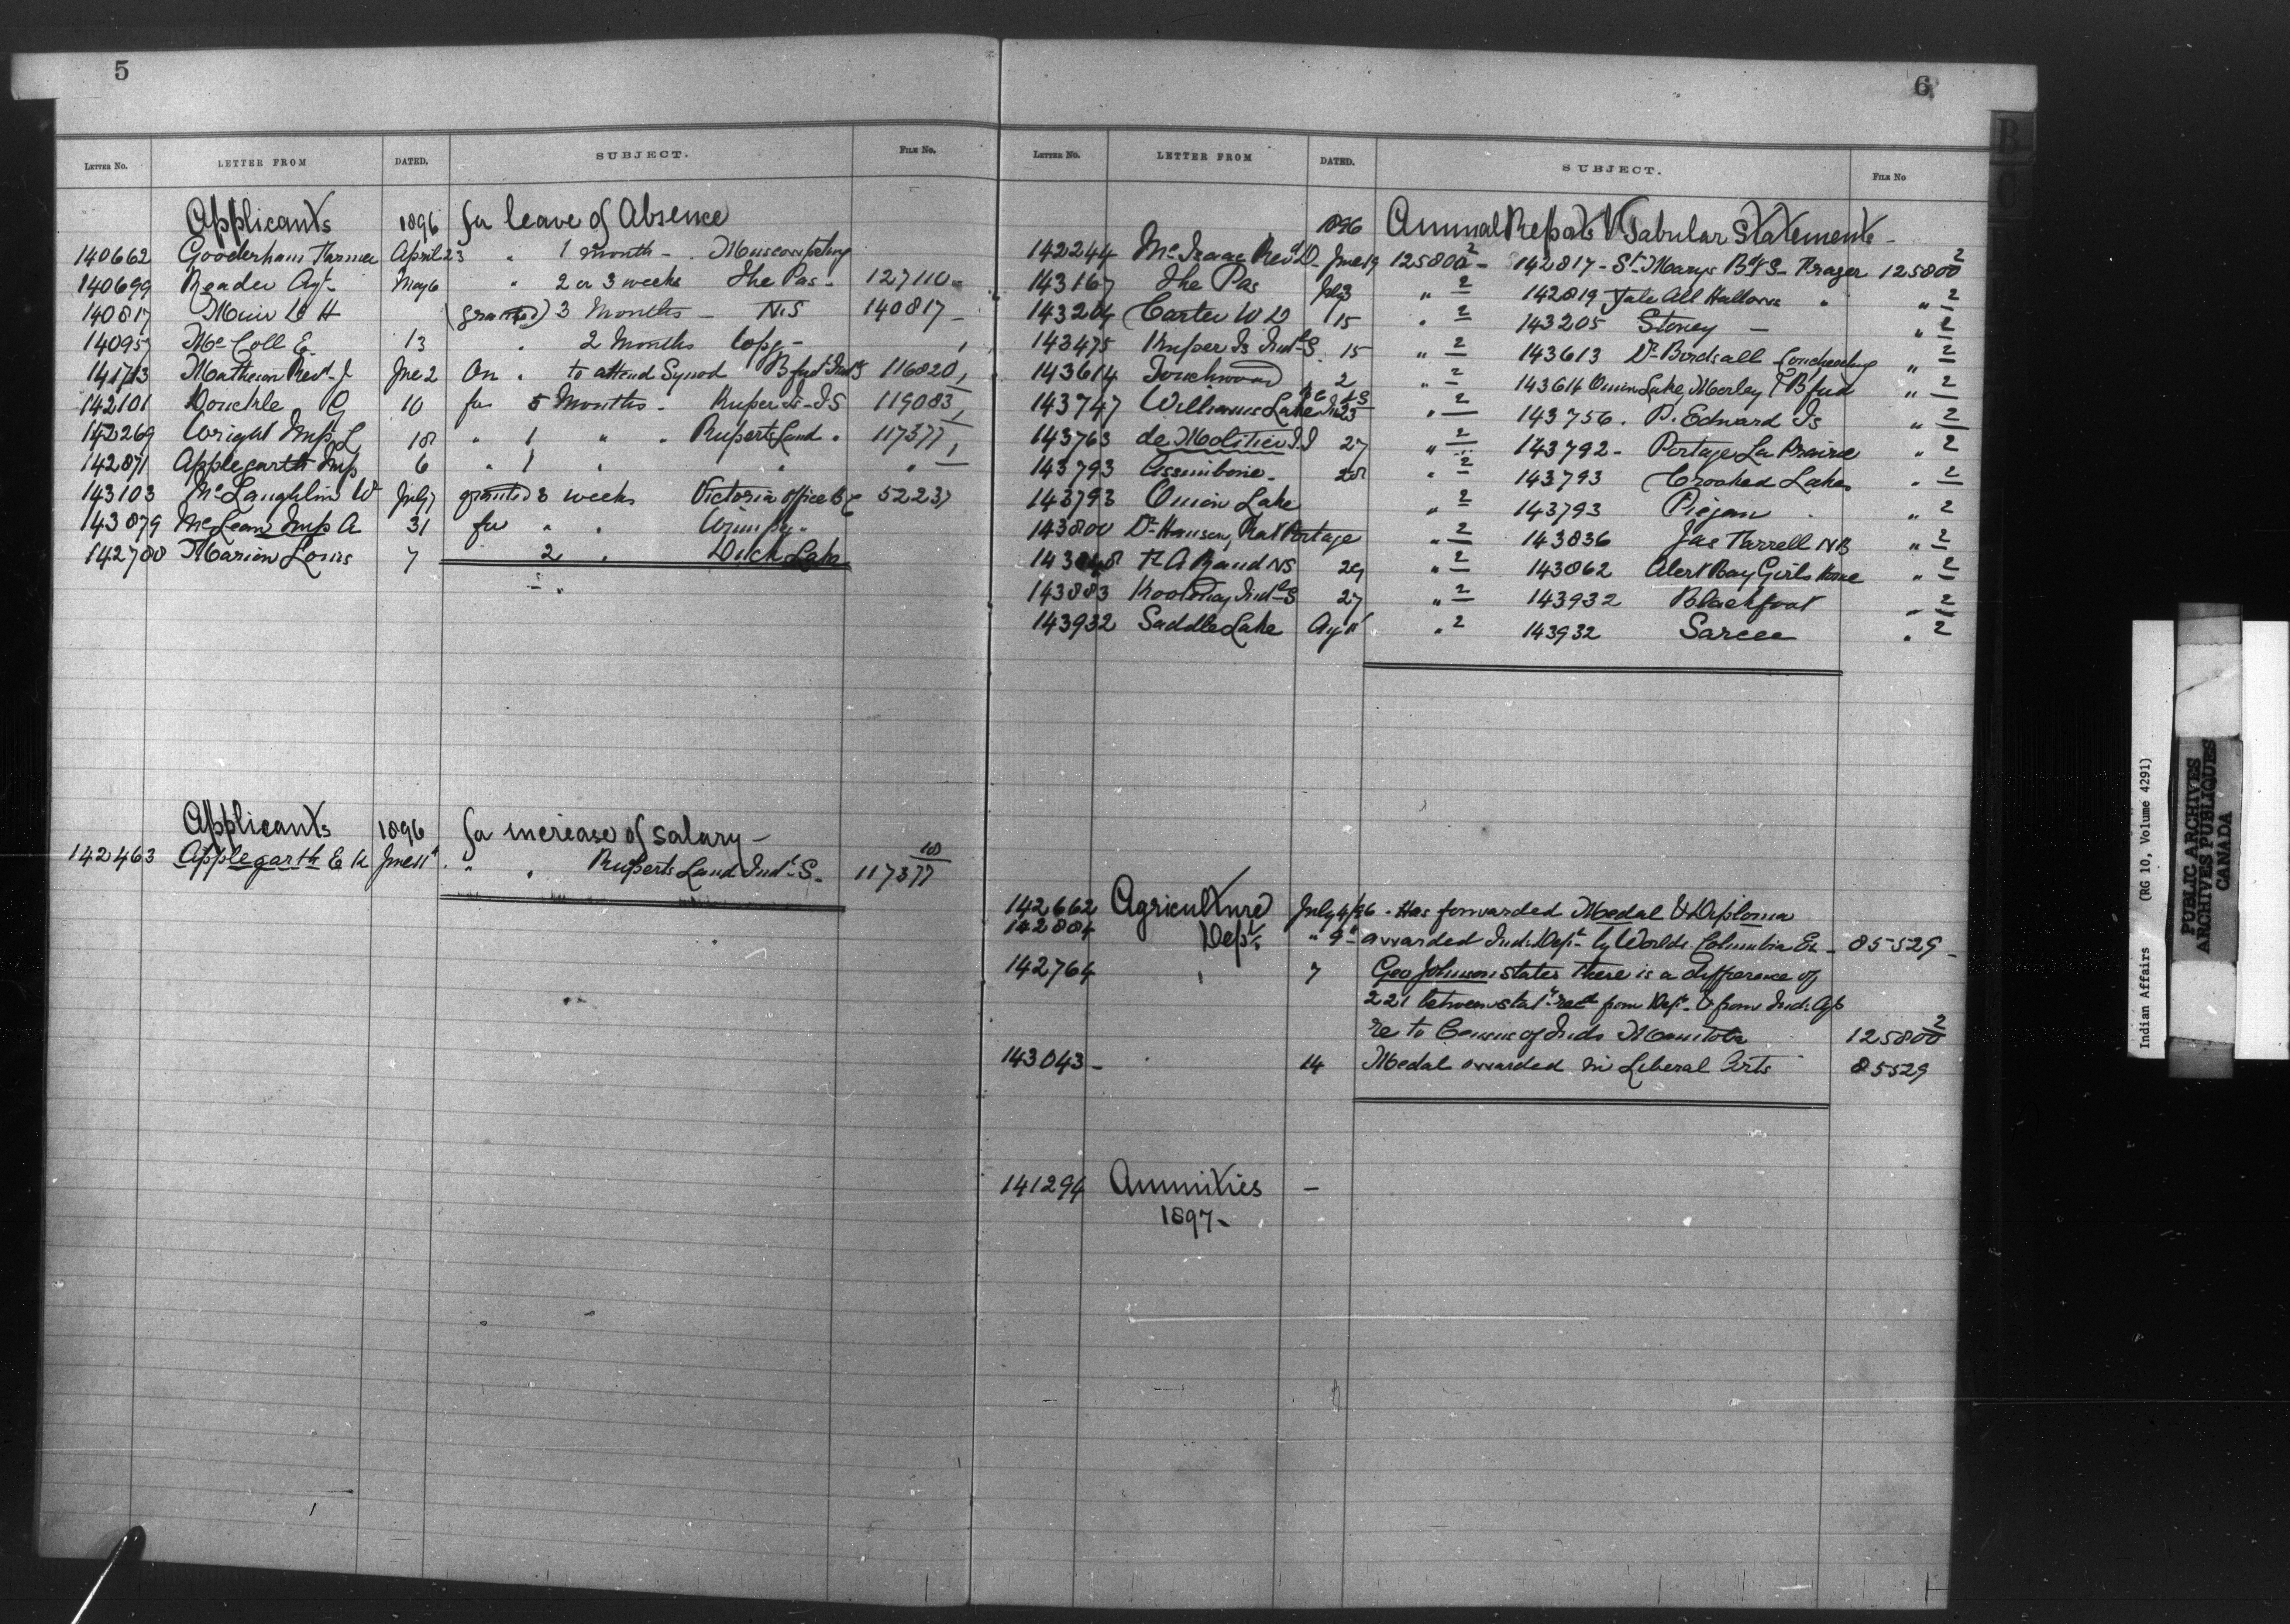 5
LETTER No. LETTER FROM DATED. SUBJECT. FILE No.
Applicants 1896 for leave of Absence
140662 Gooderham Farmer April 23 " 1 month - Muscowpetung
140699 Reader Agt. May 6 " 2 or 3 weeks The Pas - 127110 -
140817 Muir W H (granted) 3 Months - N.S 140817 -
14095 McColl E. 13 " 2 Months
141713 Matheson Revd. J June 2 On " to attend Synod Bford Inds 116820
142101 Donckele G 10 for 5 Months - Kuper Is - I S 119083
142269 Wright Insp L 18 " 1 " " Ruperts Land " 117377
142871 Applegarth Insp 6 " 1 " " " —
143103 McLaughlin W July 7 granted 3 weeks Victoria Office BC 52237
143879 McLean Insp A 31 for " " Winnpg "
142700 Marion Louis 7 2 " Duck Lake
Applicants 1896 for increase of salary -
142463 Applegarth E K June 11 " " Ruperts Land Indl. S - 117377 10
6
B
C
LETTER No. LETTER FROM DATED. SUBJECT. FILE No
1896 Annual Reports & Tabular Statements -
142244 McIsaac Revd D. June 19 125800 2 - 142817 - St. Marys Bdg S - Frazer 125800 2
143167 The Pas July 3 " 2 142819 Yale All Hallows " " 2
143204 Carter W D 15 " 2 143205 Stoney - " 2
143475 Kuper Is Indl S. 15 " 2 143613 Dr. Birdsall Couchiching " 2
143614 Touchwood " 2 " 2 143614 Onion Lake, Morley & Bford " 2
143747 Williams Lake BC IS 23 " 2 143756. P. Edward Is " 2
143763 de Molitor I I 27 " 2 143792 - Portage La Prairie " 2
143793 Assiniboine - 28 " 2 143793 Crooked Lakes " 2
143793 Onion Lake " 2 143793 Piegan " 2
143800 Dr. Hanson, Rat Portage " 2 143836 Jas Farrell NB " 2
143848 F A Rand NS 29 " 2 143862 Alert Bay Girls Home " 2
143883 Kootenay Indl S 27 " 2 143932 Blackfoot " 2
143932 Saddle Lake Aug " 2 143932 Sarcee " 2
142662 Agriculture July 4/96 - Has forwarded Medal & Diploma
142884 Dept. " 9 " awarded Ind. Dept. by Worlds Columbian Ex - 85529 -
142764 " 7 Geo Johnson states there is a difference of
221 between stat. recd from Dept. & from Ind. Agts
re to Census of Inds Manitoba 125800 2
143043 - " 14 Medal awarded in Liberal Arts 85529
141294 Annuities -
1897 -
Indian Affairs (RG 10, Volume 4291)
PUBLIC ARCHIVES
ARCHIVES PUBLIQUES
CANADA